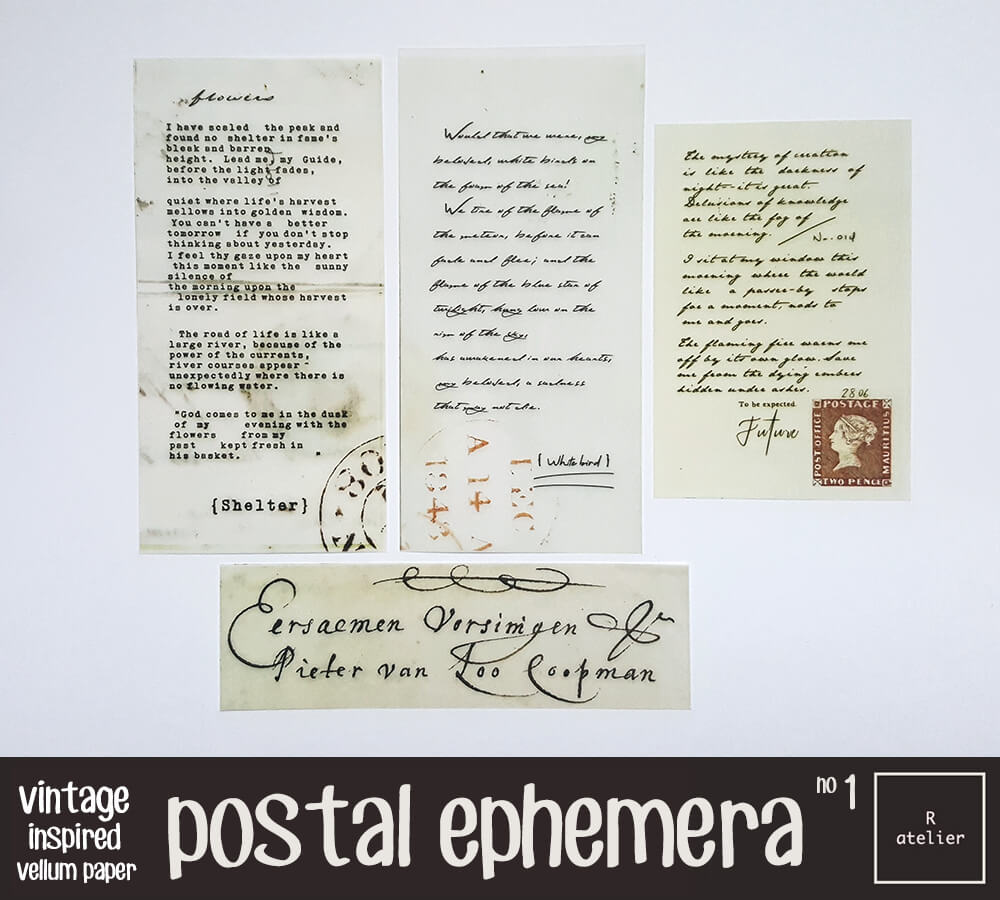 flowers
I have scaled the peak and
found no shelter in fame's
bleak and barren
height. Lead me, my Guide,
before the light fades,
into the valley of
quiet where life's harvest
mellows into golden wisdom.
You can't have a better
tomorrow if you don't stop
thinking about yesterday.
I feel thy gaze upon my heart
this moment like the sunny
silence of
the morning upon the
lonely field whose harvest
is over.
The road of life is like a
large river, because of the
power of the currents,
river courses appear
unexpectedly where there is
no flowing water.
"God comes to me in the dusk
of my evening with the
flowers from my
past kept fresh in
his basket.
{Shelter}
80
Would that we were, my
beloved, white birds on
the foam of the sea!
We tire of the flame of
the meteor, before it can
fade and flee; and the
flame of the blue star of
twilight, hung low on the
rim of the sky,
has awakened in our hearts,
my beloved, a sadness
that may not die.
{ White bird }
DEC
A 14 A
1848
The mystery of creation
is like the darkness of
night--it is great.
Delusions of knowledge
are like the fog of
the morning.
No. 014
I sit at my window this
morning where the world
like a passer-by stops
for a moment, nods to
me and goes.
The flaming fire warns me
off by its own glow. Save
me from the dying embers
hidden under ashes.
To be expected.
Future
28 06
POSTAGE
POST OFFICE
MAURITIUS
TWO PENCE
Eersaemen Vorsinigen
Pieter van Loo Coopman
vintage
inspired
vellum paper
postal ephemera no 1
R
atelier